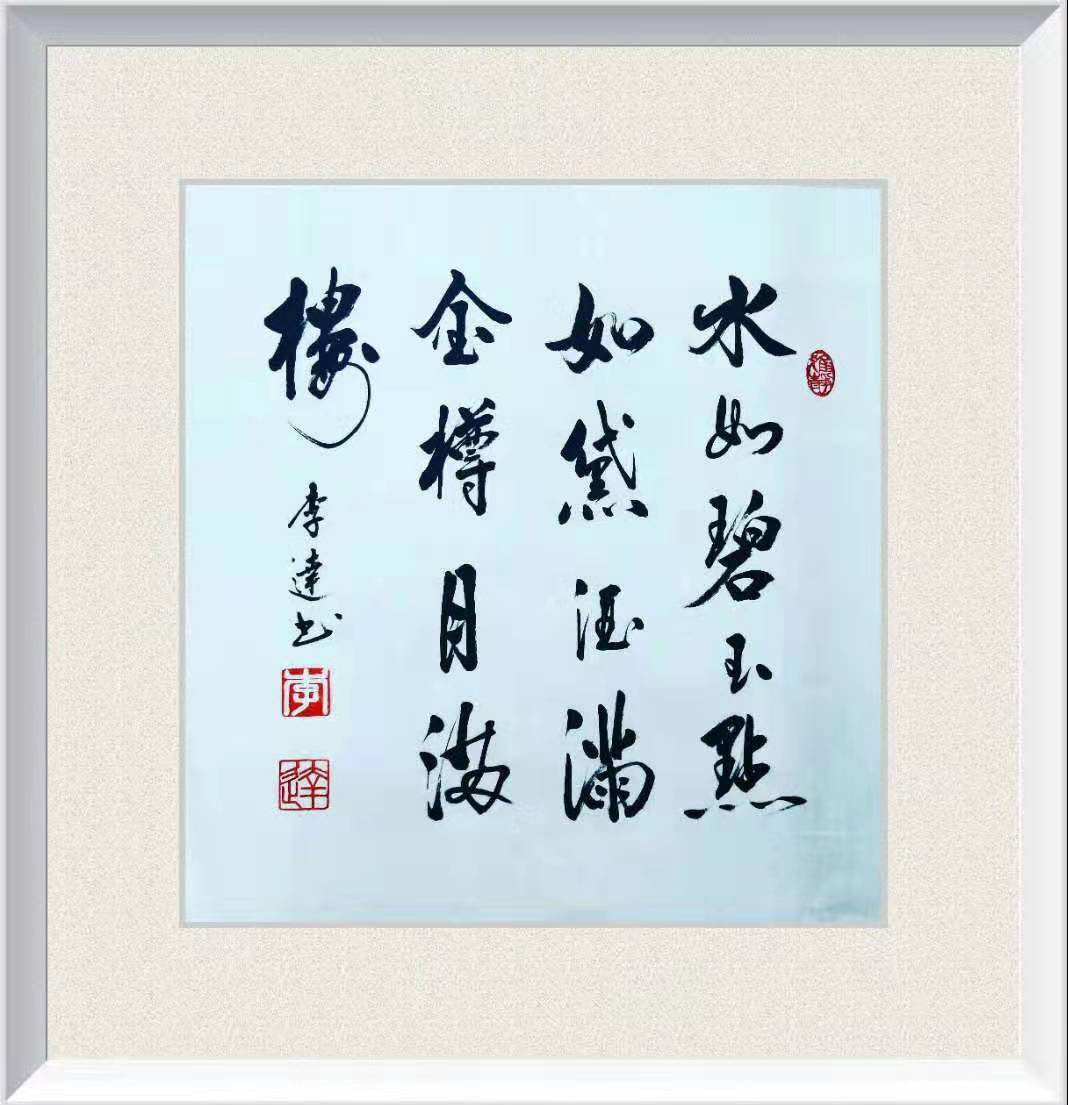 水如碧玉點
如黛酒滿
金樽月满
樓
李達书
李
達